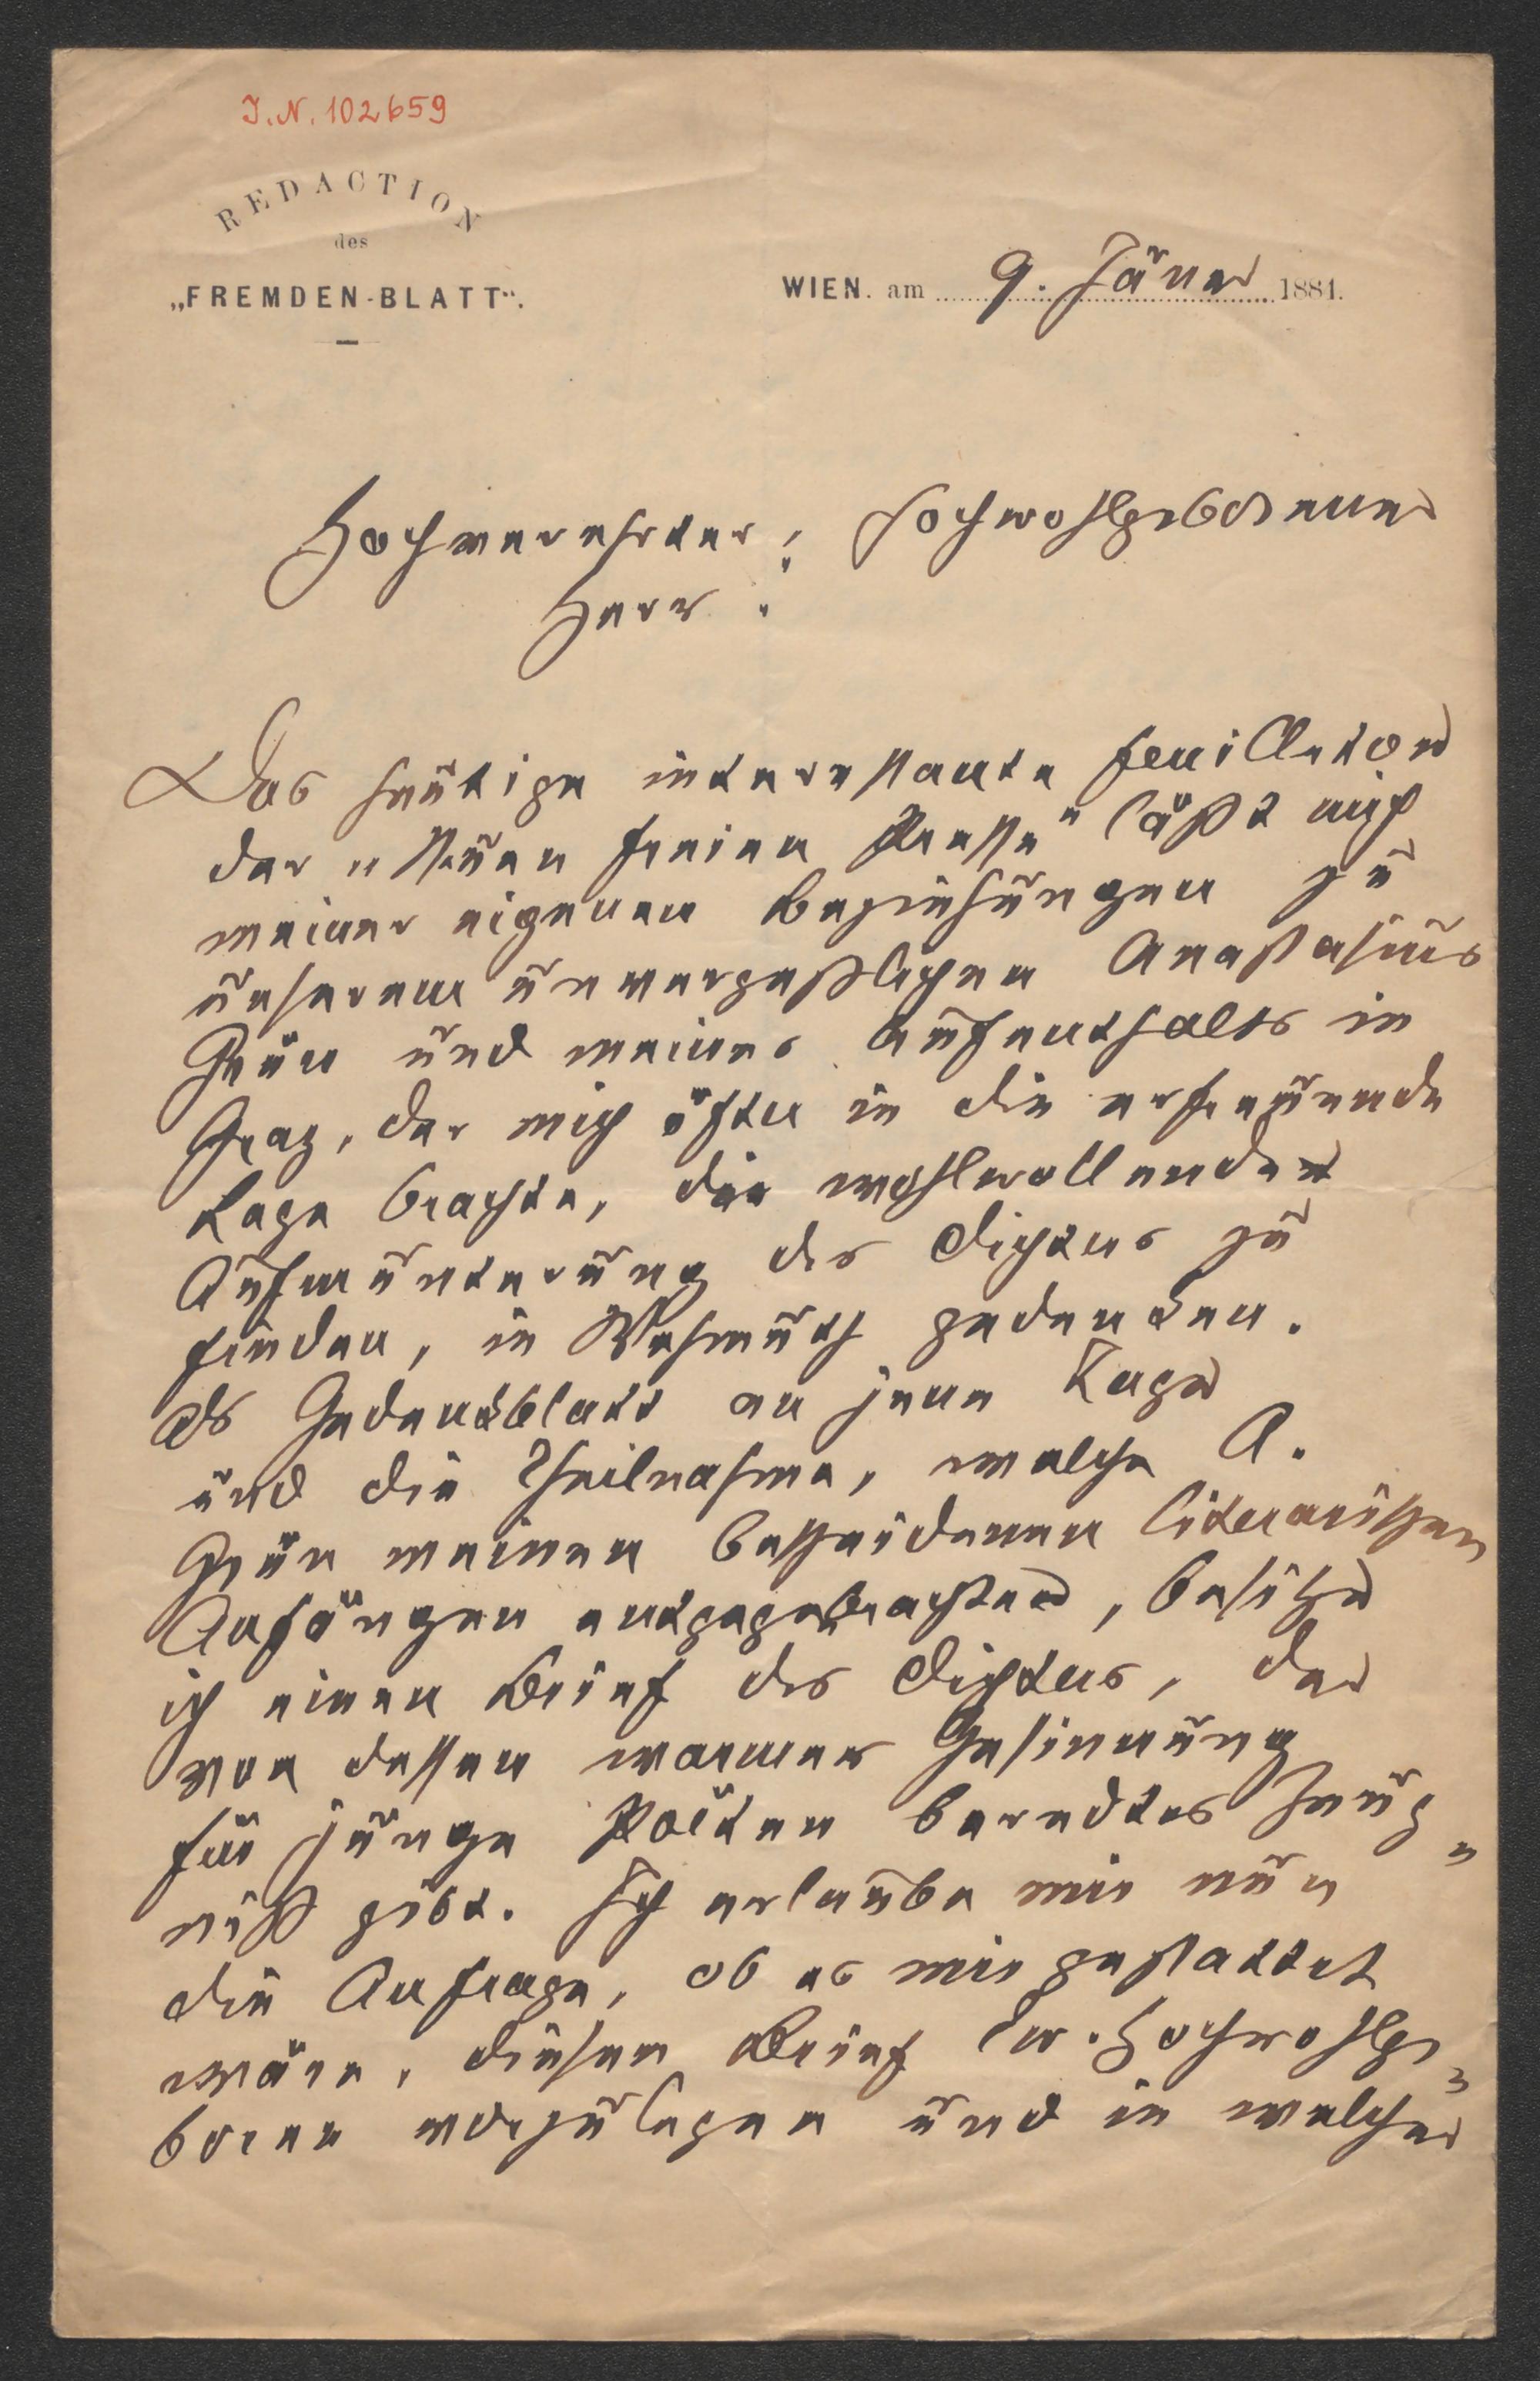 I.N. 102659
REDACTION
des
„FREMDEN-BLATT“.
WIEN. am 9. Jäner 1881.
Hochverehrter, Hochwohlgeborener
Herr!
Das heutige interessante Feuilleton
der „Neuen freien Presse" läßt mich
meiner eigenen Beziehungen zu
unserem unvergeßlichen Anastasius
Grün und meines Aufenthalts in
Graz, der mich öfter in die erfreuende
Lage brachte, die wohlwollende
Aufmunterung des Dichters zu
finden, in Wehmuth gedenken.
Als Gedenkblatt an jene Tage
und die Theilnahme, welche A.
Grün meinen bescheidenen literarischen
Anfängen entgegenbrachte, besitze
ich einen Brief des Dichters, der
von dessen warmer Gesinnung
für junge Poëten beredtes Zeug-
niß gibt. Ich erlaube mir nun
die Anfrage, ob es mir gestattet
wäre, diesen Brief Ew. Hochwohlge-
boren vorzulegen und in welcher